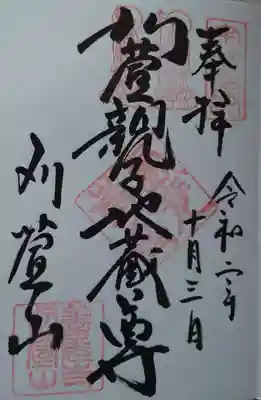 奉拝
令和二年
十月三日
刈萱親子地蔵尊
刈萱山